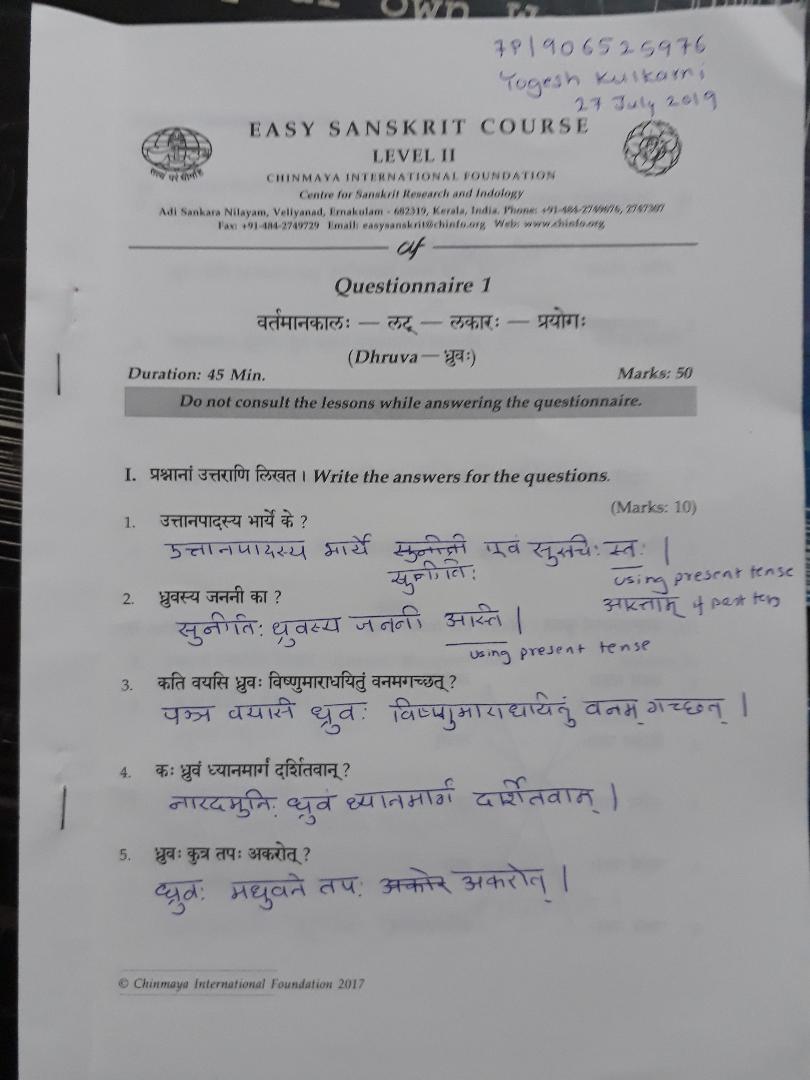 OWN W
7P1906525976
Yogesh Kulkarni
27 July 2019
EASY SANSKRIT COURSE
LEVEL II
CHINMAYA INTERNATIONAL FOUNDATION
Centre for Sanskrit Research and Indology
Adi Sankara Nilayam, Veliyanad, Ernakulam - 682319, Kerala, India. Phone: +91-484-2749676, 2747307
Fax: +91-484-2749729 Email: easysanskrit@chinfo.org Web: www.chinfo.org
Questionnaire 1
वर्तमानकालः — लट् — लकारः — प्रयोगः
(Dhruva — ध्रुवः)
Duration: 45 Min. Marks: 50
Do not consult the lessons while answering the questionnaire.
I. प्रश्नानां उत्तराणि लिखत । Write the answers for the questions.
(Marks: 10)
1. उत्तानपादस्य भार्ये के ?
उत्तानपादस्य भार्ये सुनीती एवं सुरुचिः स्तः |
सुनीतिः
using present tense
आस्ताम् if past ten
2. ध्रुवस्य जननी का ?
सुनीतिः ध्रुवस्य जननी अस्ति |
using present tense
3. कति वयसि ध्रुवः विष्णुमाराधयितुं वनमगच्छत् ?
पञ्च वयसि ध्रुवः विष्णुमाराधयितुं वनम् गच्छत् |
4. कः ध्रुवं ध्यानमार्गं दर्शितवान् ?
नारदमुनिः ध्रुवं ध्यानमार्गं दर्शितवान् |
5. ध्रुवः कुत्र तपः अकरोत् ?
ध्रुवः मधुवने तपः अकोर अकरोत् |
© Chinmaya International Foundation 2017